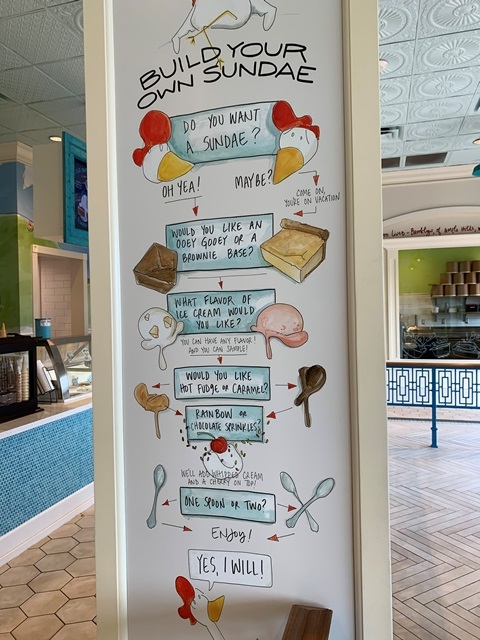 BUILD YOUR
OWN SUNDAE
DO YOU WANT
A SUNDAE?
OH YEA!
MAYBE?
COME ON,
YOU'RE ON VACATION
WOULD YOU LIKE AN
OOEY GOOEY OR A
BROWNIE BASE?
WHAT FLAVOR OF
ICE CREAM WOULD
YOU LIKE?
YOU CAN HAVE ANY FLAVOR!
AND YOU CAN SAMPLE!
WOULD YOU LIKE
HOT FUDGE OR CARAMEL?
RAINBOW OR
CHOCOLATE SPRINKLES?
WE'LL ADD WHIPPED CREAM
AND A CHERRY ON TOP!
ONE SPOON OR TWO?
ENJOY!
YES, I WILL!